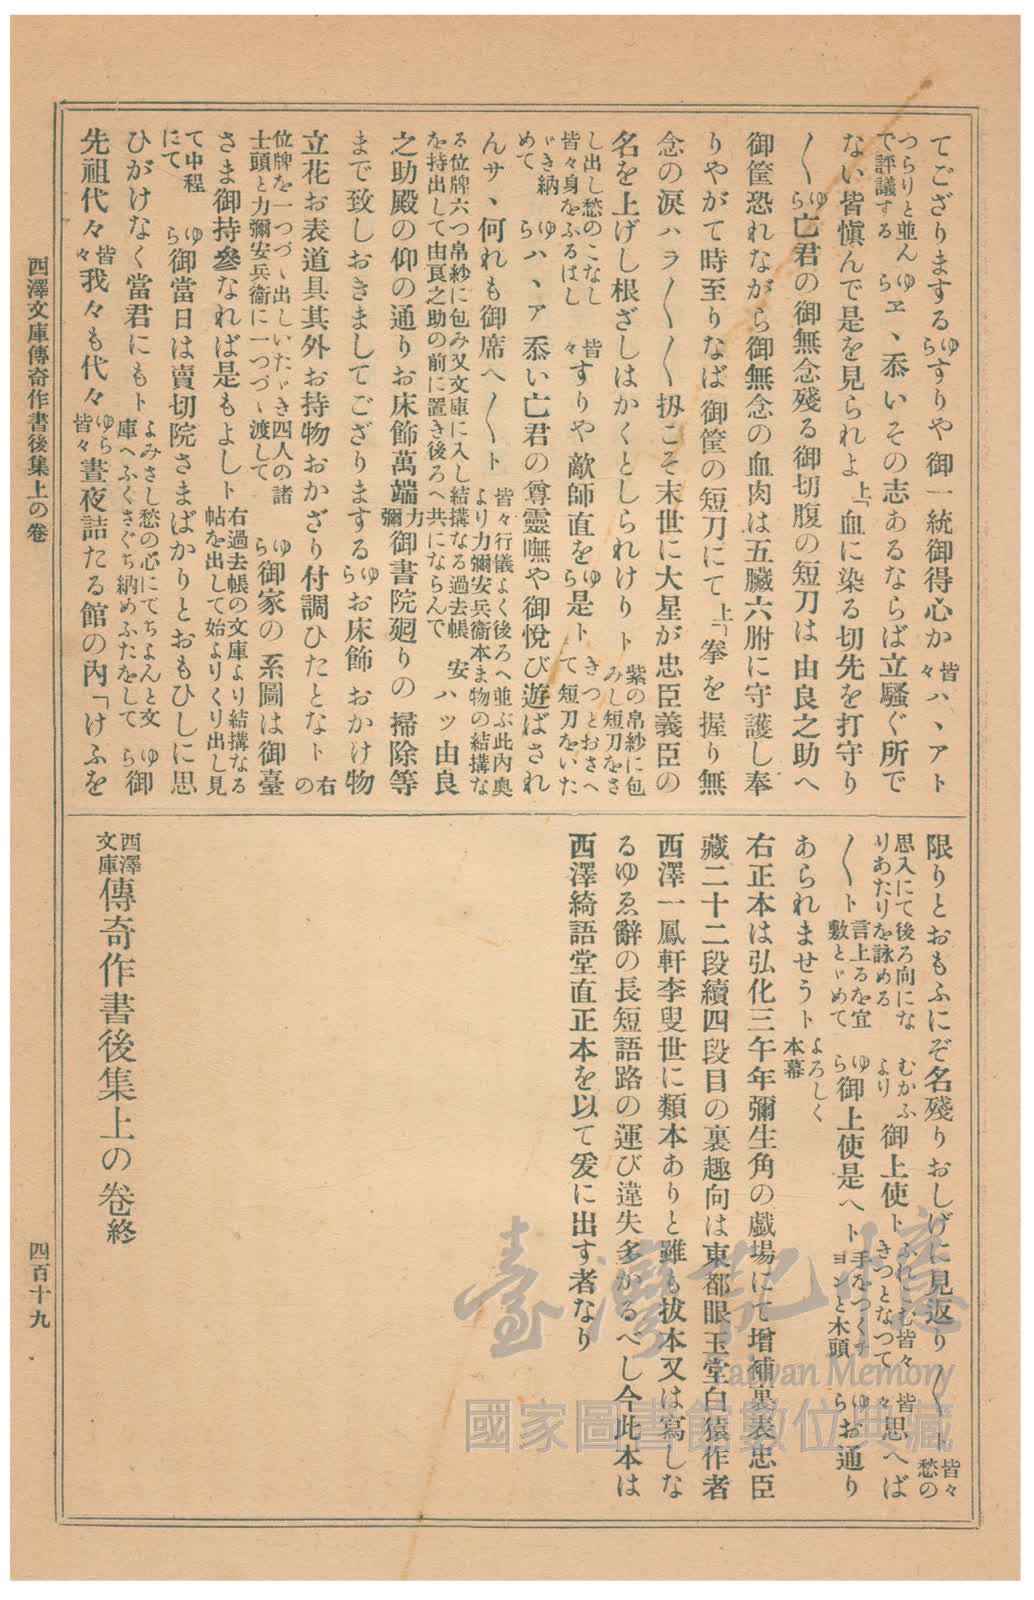 てござりまする ゆらすりや御一統御得心か 皆々ハヽアト
つらりと並んで評議する ゆらヱヽ忝いその志あるならば立騷ぐ所で
ない皆愼んで是を見られよ 上「血に染る切先を打守り
〳〵 ゆら亡君の御無念殘る御切腹の短刀は由良之助へ
御筐恐れながら御無念の血肉は五臟六腑に守護し奉
りやがて時至りなば御筐の短刀にて 上「拳を握り無
念の涙ハラ〳〵〳〵扨こそ末世に大星が忠臣義臣の
名を上げし根ざしはかくとしられけりト 紫の帛紗に包みし短刀をさ
し出し愁のこなし皆々身をふるはし 皆々すりや敵師直を ゆら是ト きつとおさへて短刀をいた
ゞき納めて ゆらハヽア忝い亡君の尊靈嘸や御悅び遊ばされ
んサヽ何れも御席へ〳〵ト 皆々行儀よく後ろへ並ぶ此内奧より力彌安兵衞本ま物の結搆な
る位牌六つ帛紗に包み又文庫に入し結搆なる過去帳を持出して由良之助の前に置き後ろへ共にならんで 安ハッ由良
之助殿の仰の通りお床飾萬端 力彌御書院廻りの掃除等
まで致しおきましてござりまする ゆらお床飾おかけ物
立花お表道具其外お持物おかざり付調ひたとなト 右の
位牌を一つづゝ出しいたゞき四人の諸士頭と力彌安兵衞に一つづゝ渡して ゆら御家の系圖は御臺
さま御持參なれば是もよしト 右過去帳の文庫より結搆なる帖を出して始よりくり出し見
て中程にて ゆら御當日は賣切院さまばかりとおもひしに思
ひがけなく當君にもト よみさし愁の心にてちよんと文庫へふくさぐち納めふたをして ゆら御
先祖代々 皆々我々も代々 ゆら皆々晝夜詰たる館の內「けふを
限りとおもふにぞ名殘りおしげに見返り〳〵ト 皆々愁の
思入にて後ろ向になりあたりを詠める むかふより 御上使ト ふれこむ皆々きつとなつて 皆々思へば
〳〵ト 言上るを宜敷とゞめて ゆら御上使是へト 手をつくチョンと木頭 ゆらお通り
あられませうト よろしく本幕
右正本は弘化三午年彌生角の戲場にて增補裏表忠臣
藏二十二段續四段目の裏趣向は東都眼玉堂白猿作者
西澤一鳳軒李叟世に類本ありと雖も拔本又は寫しな
るゆゑ辭の長短語路の運び違失多かるべし今此本は
西澤綺語堂直正本を以て爰に出す者なり
西澤文庫傳奇作書後集上の卷終
西澤文庫傳奇作書後集上の卷
四百十九
臺灣記憶
Taiwan Memory
國家圖書館數位典藏